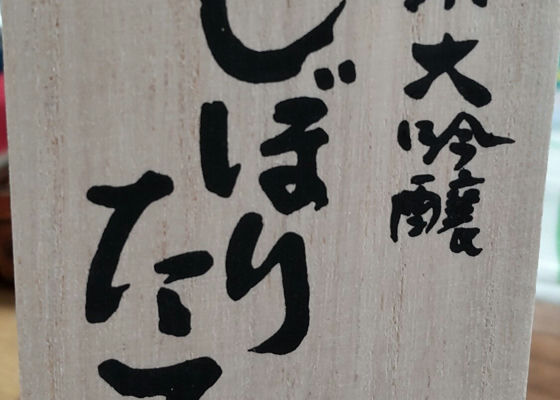 大吟醸
しぼり
たて